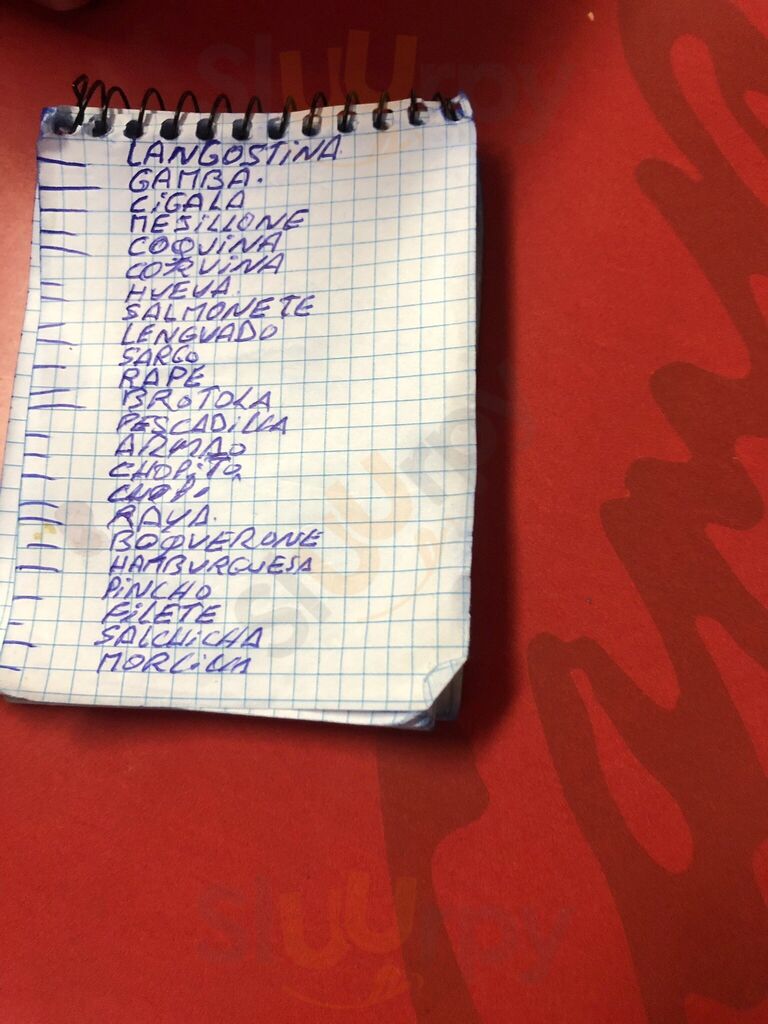 LANGOSTINA
GAMBA.
CIGALA
MEJILLONE
COQUINA
CORVINA
HUEVA.
SALMONETE
LENGUADO
SARGO
RAPE
BROTOLA
PESCADILLA
ARMAO
CHOPITO
CHOPO
RAYA.
BOQUERONE
HAMBURGUESA
PINCHO
FILETE
SALCHICHA
MORCILLA
Sluurpy
Sluurpy
Sluurpy
Sluurpy